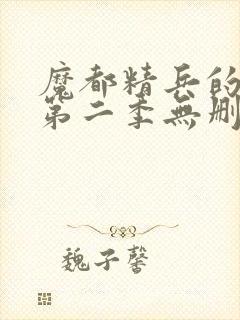 魔都精兵的
第二季無刪
魏子馨